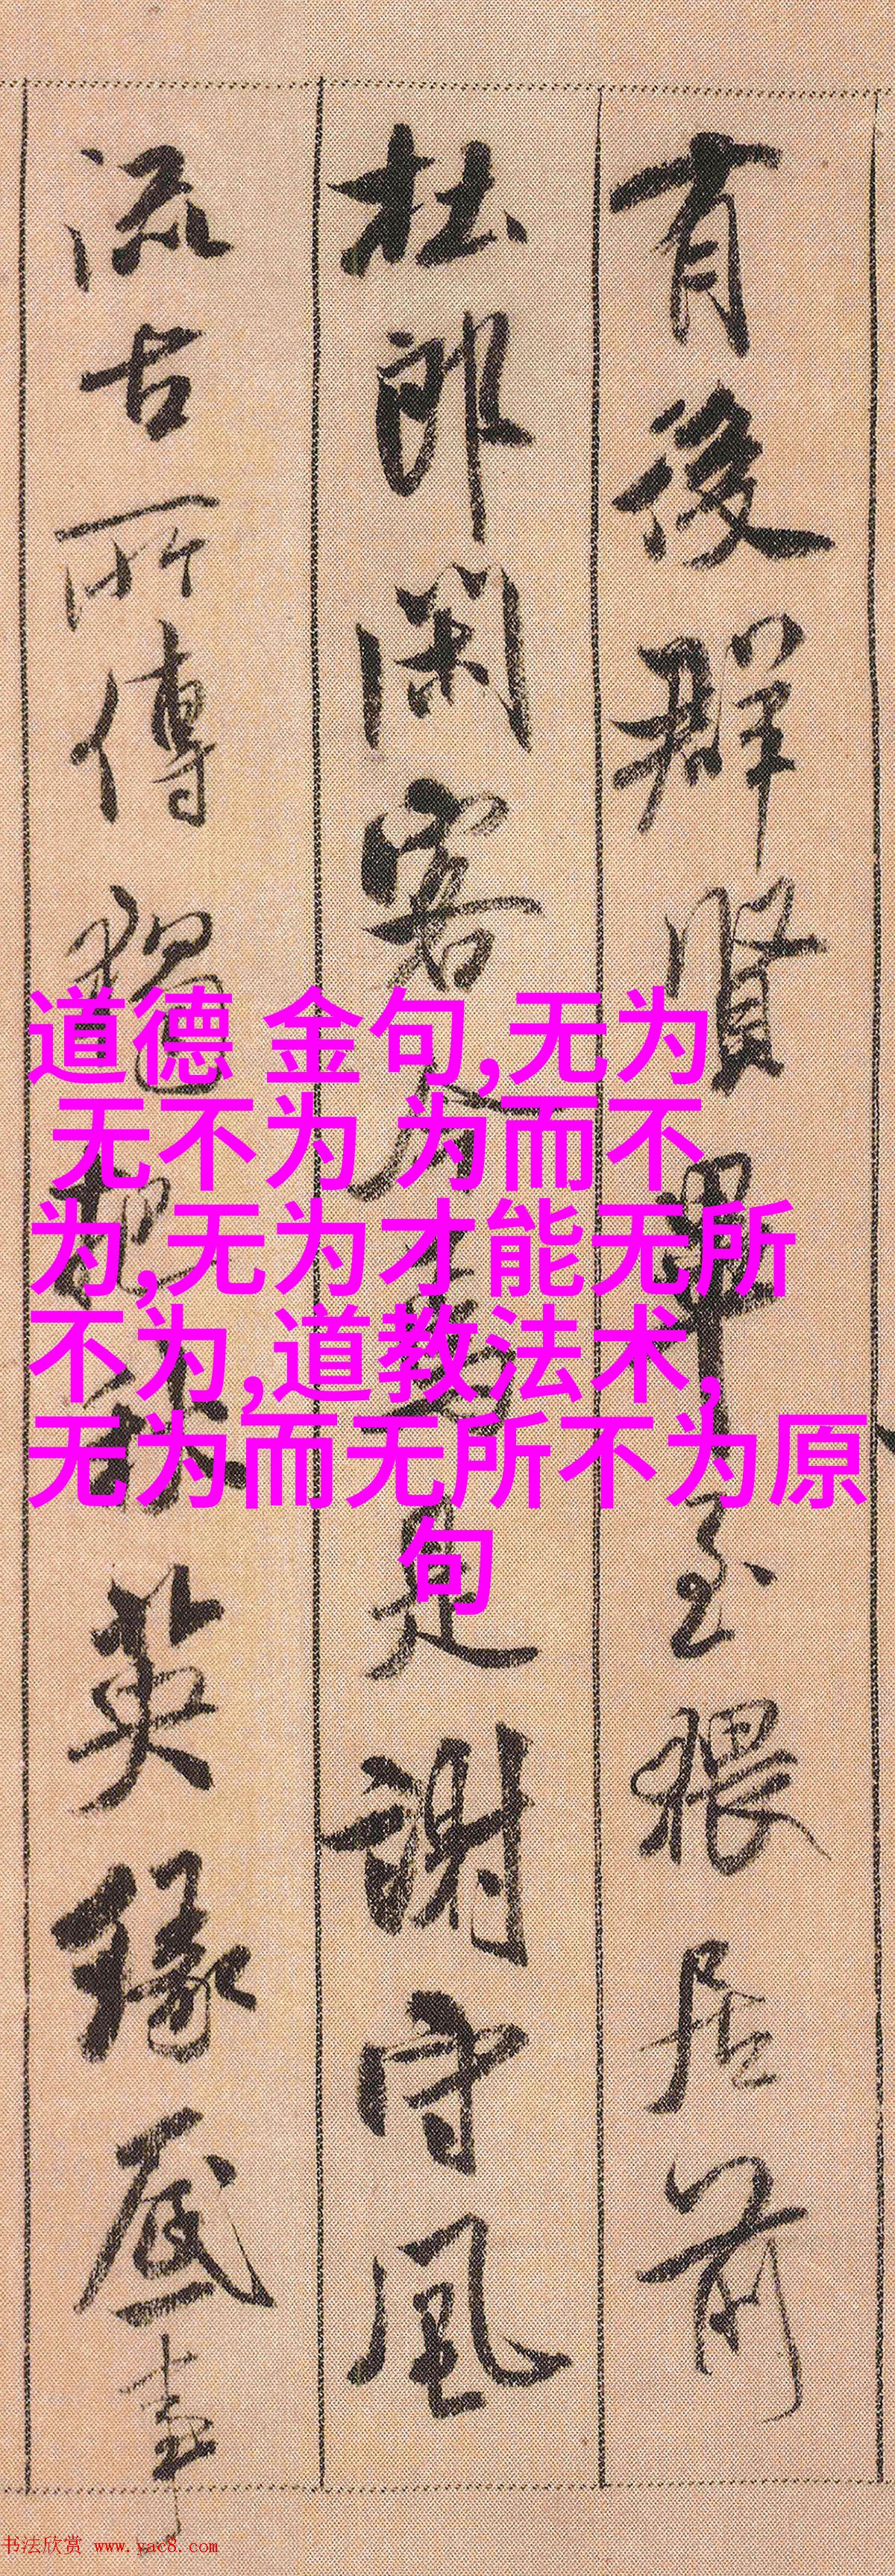 有後群賢畢至猥居前
杜郎閑客今焉是謝守風
流古所傳獨把秋英緣底事
道德 金句,无为
无不为 为而不
为,无为才能无所
不为,道教法术,
无为而无所不为原
句
书法欣赏 www.yac8.com